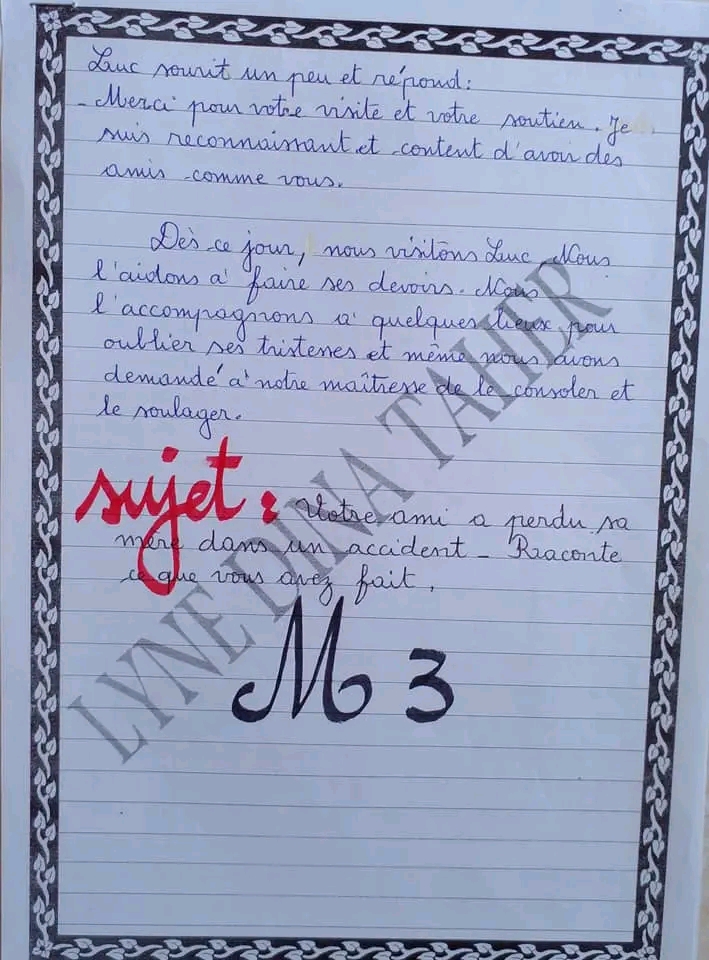 Luc sourit un peu et répond:
- Merci pour votre visite et votre soutien. Je
suis reconnaissant et content d'avoir des
amis comme vous.
Dès ce jour, nous visitons Luc. Nous
l'aidons à faire ses devoirs. Nous
l'accompagnons à quelques lieux pour
oublier ses tristesses et même nous avons
demandé à notre maîtresse de le consoler et
le soulager.
sujet : Votre ami a perdu sa
mère dans un accident - Raconte
ce que vous avez fait.
M 3
LYNE DINA TAHER